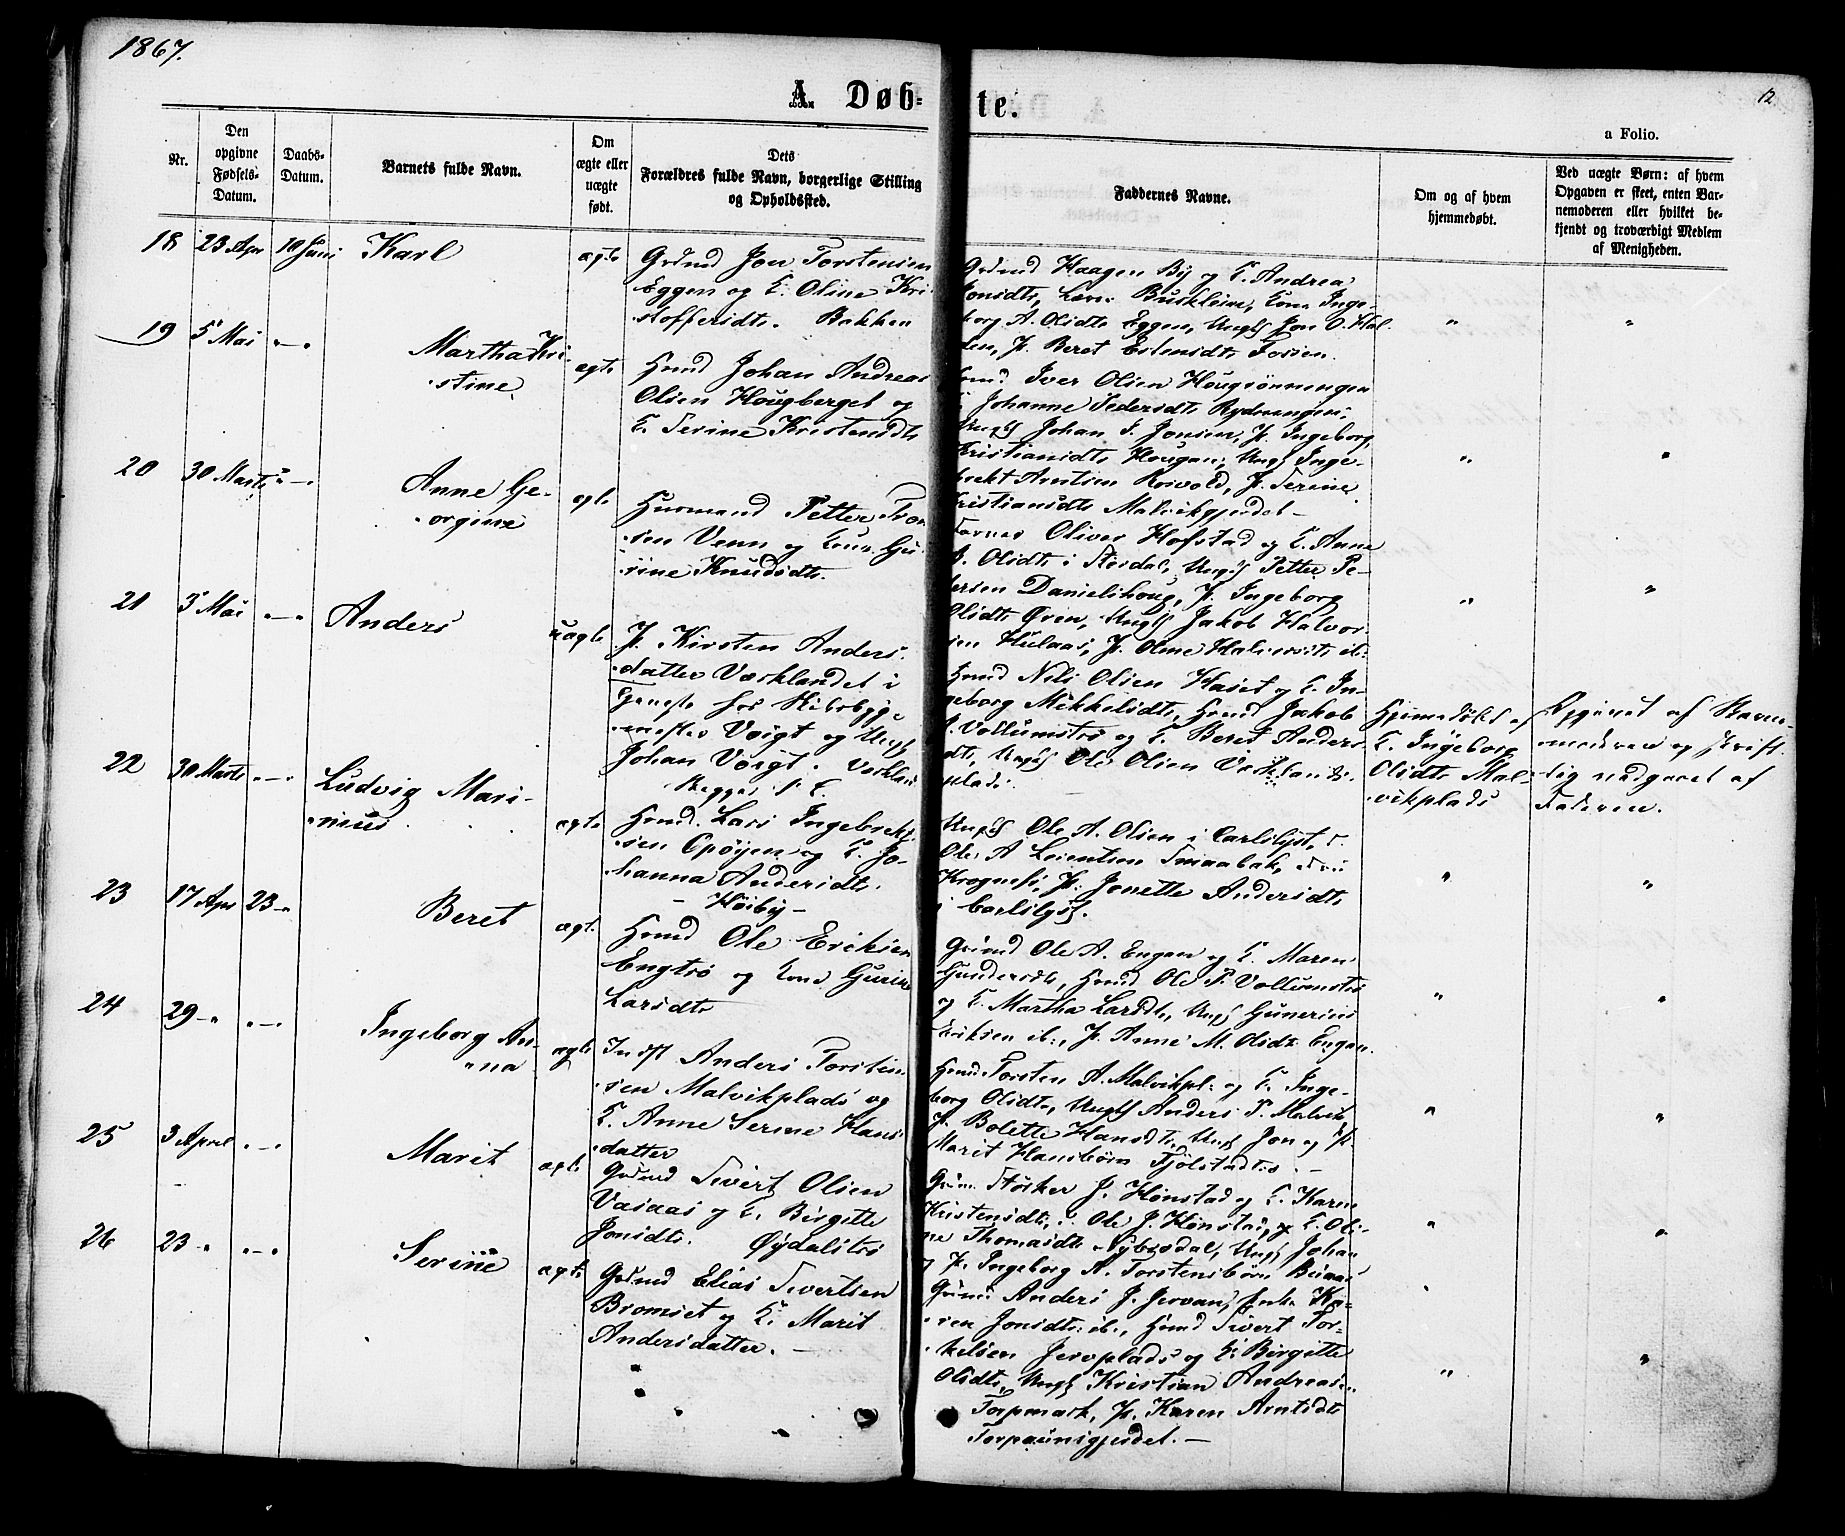 1867.
12
A. Døb-
te.
a Folio.
Nr.
Den opgivne Fødsels-Datum.
Daabs-Datum.
Barnets fulde Navn.
Om ægte eller uægte født.
Dets Forældres fulde Navn, borgerlige Stilling og Opholdssted.
Faddernes Navne.
Om og af hvem hjemmedøbt.
Ved uægte Børn: af hvem Opgaven er skeet, enten Barnemoderen eller hvilket bekjendt og troværdigt Medlem af Menigheden.
18 23 Apr 10 Juni Karl ægte
Grdmd Jon Torstensen
Eggen og E. Oline Kri-
stoffersdtr. Bakken
Grdmd Haagen By og E. Andrea
Jonsdtr, Buskleine, Kone Inge-
borg A. Olsdtr Eggen, Ungk Jon O. Hal-
den, P. Beret Estensdtr Fossen.
19 5 Mai " — " Martha Kri-
stine ægte
Hmd Johan Andreas
Olsen Hougberget og
E. Serine Kristensdtr
Hmd Iver Olsen Hougsønningen
E Johanne Pedersdtr Rydningen,
Ungk Johan J. Jonsen, P. Ingeborg
Kristiansdtr Hougan, Ungk Inge-
brekt Arntsen Rosvold, P. Serine
Kristiansdtr Malvikgjerdet —
20 30 Marts " — " Anne Ge-
orgine ægte
Huusmand Petter
sen Venn og Kone Gu-
rine Knudsdtr.
Oliver Hofstad og E. Anne
A. Olsdtr i Stördal, Ungk Petter Pe-
dersen Danielshoug, P. Ingeborg
Olsdtr Øven, Ungk Jakob Halvor-
sen Hulaas, P. Oline Halvorsdtr ib:
21 5 Mai " — " Anders uægte
P. Kirsten Anders-
datter Værklandet i
Tjeneste hos Skibsbyg-
mester Voigt og Ungk
Johan Voigt. Værkland
Begges 1. L.
Hmd Nils Olsen Haset og E. In-
geborg Mikkelsdtr, Hmd Jakob
J. Vollumstrø og E. Beret Anders-
dtr, Ungk Ole Olsen Værklands-
plads.
Hjemmedøbt af
E. Ingeborg
Olsdtr Mal-
vikplads
Opgivet af Barne-
moderen og skrift-
lig vedgaaet af
Faderen.
22 30 Marts " — " Ludvig Mari-
nius ægte
Hmd. Lars Ingebrekt-
sen Opøyen og E. Jo-
hanna Andersdtr.
— Höiby —
Ungk Ole A. Olsen i Carlslyst,
Ole A Lorentsen Smaabak,
Krognes, P. Jonette Andersdtr
i Carlslyst.
23 17 Apr 23 - " Beret ægte
Hmd Ole Eriksen
Engtrø og Kone Gurine
Larsdtr
Grdmd Ole A. Engan og E. Maren
Gundersdtr, Hmd Ole P. Vollumstrø
og E. Martha Larsdtr, Ungk Gunerius
Eriksen ib:, P. Anne M. Olsdtr Engan.
24 29 - " " — " Ingeborg An-
na ægte
Indst Anders Torsten-
sen Malvikplads og
E. Anne Serine Hans-
datter
Hmd Torsten A. Malvikpl: og E. Inge-
borg Olsdtr, Ungk Anders T. Malvik
P. Bolette Hansdtr, Ungk Jon og P.
Marit Hansbørn Fjölstadtrø. —
25 3 April " — " Marit ægte
Grdmd Sivert Olsen
Vasaas og E. Birgitte
Jonsdtr. Øydalstrø
Grdm. Störker J. Hønstad og E. Karen
Kristensdtr, Ole J. Hønstad, og E. Oli-
ne Thomasdtr Nybrodal, Ungk Johan
og P. Ingeborg A. Torstensbørn
26 23 " " — " Serine ægte
Grdmd Elias Sivertsen
Bromset og E. Marit
Andersdatter. —
Grdmd Anders J. Jervan, Enke Ka-
ren Jonsdtr ib:, Hmd Sivert Tor-
kelsen Jervplads og E. Birgitte
Olsdtr, Ungk Kristian Andreas
Torpmark, P. Karen Arntsdtr
Torpaunsgjerdet. —